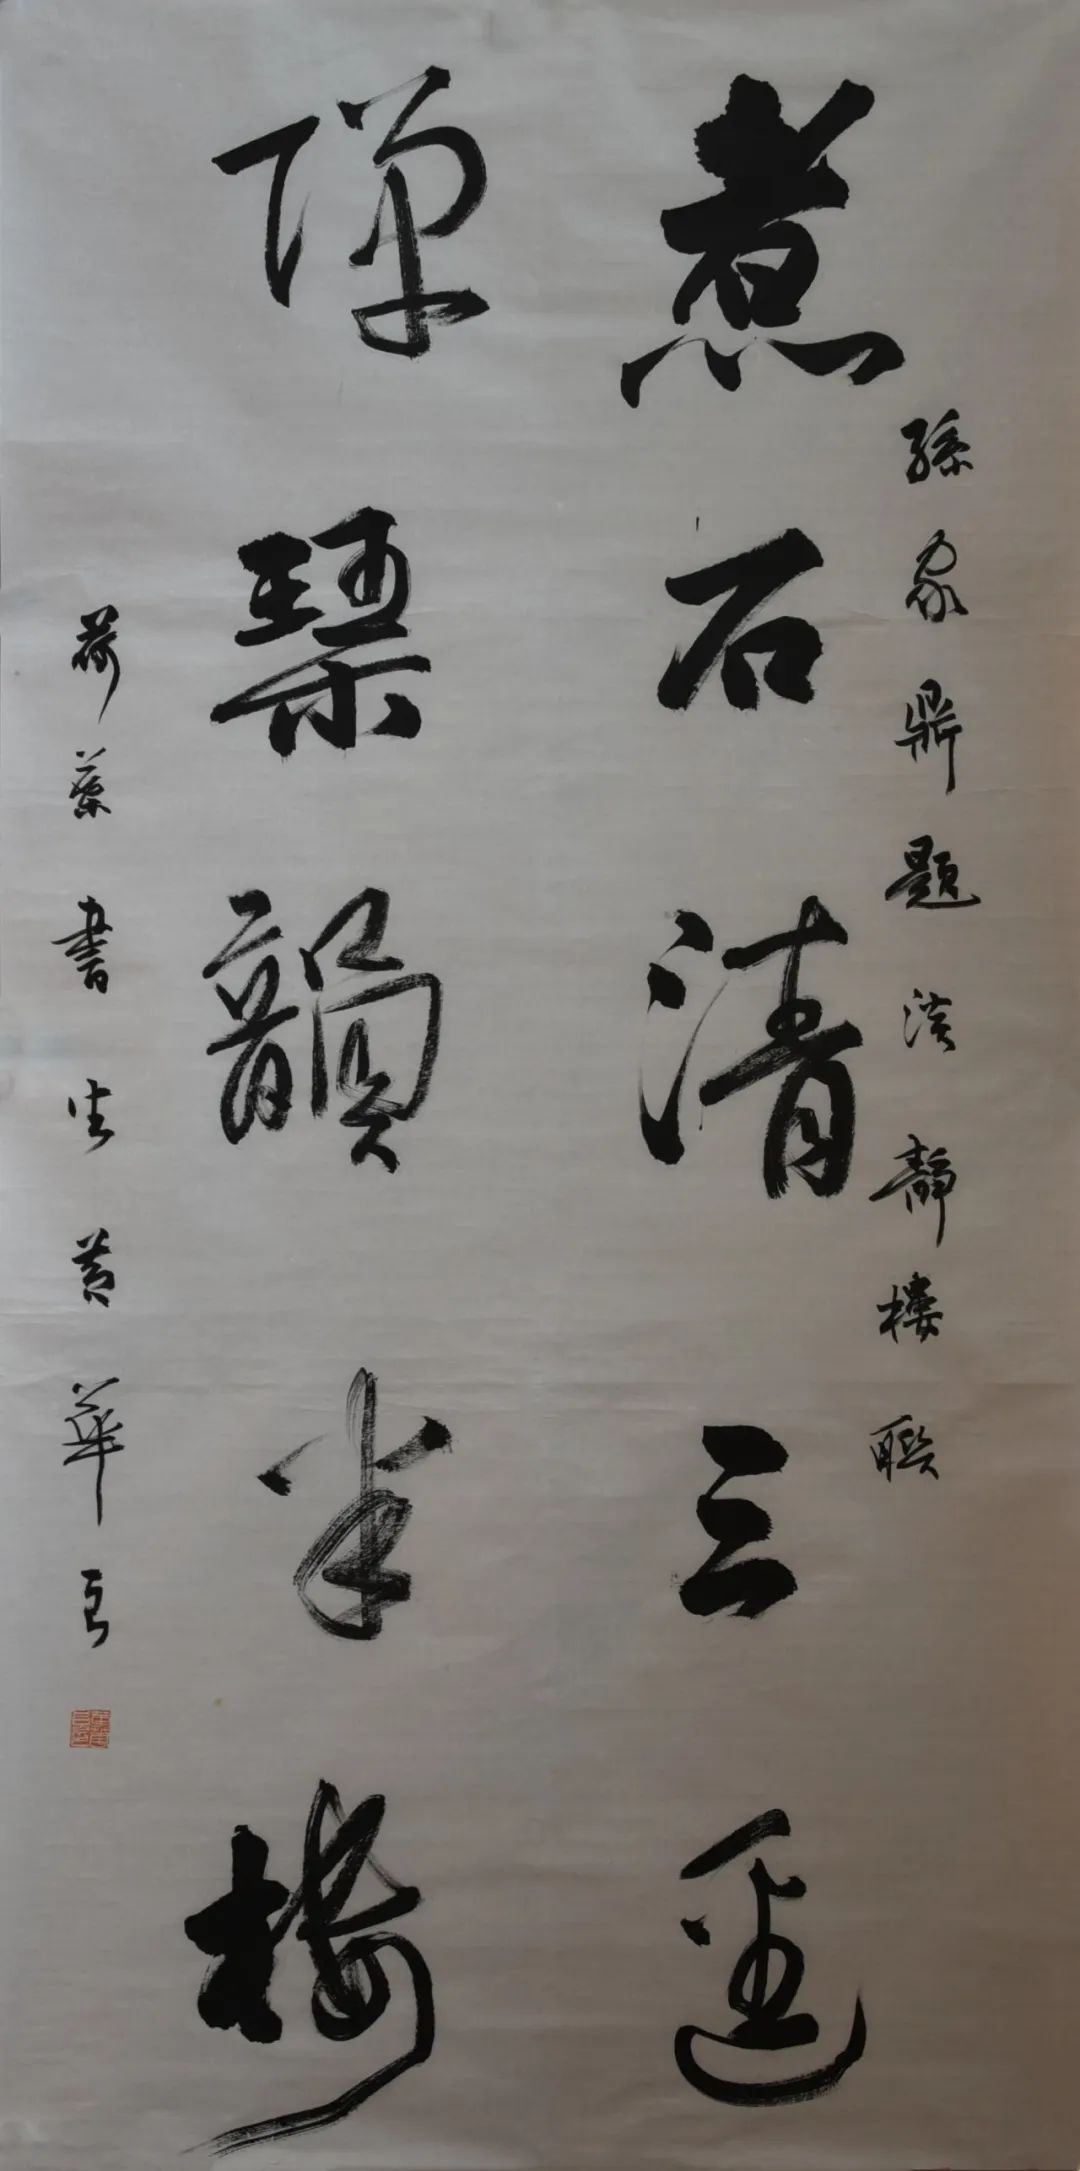 孫家鼎題淡靜樓聯
煮石清三逕
彈琴韻半樓
荷葉書生黄華良